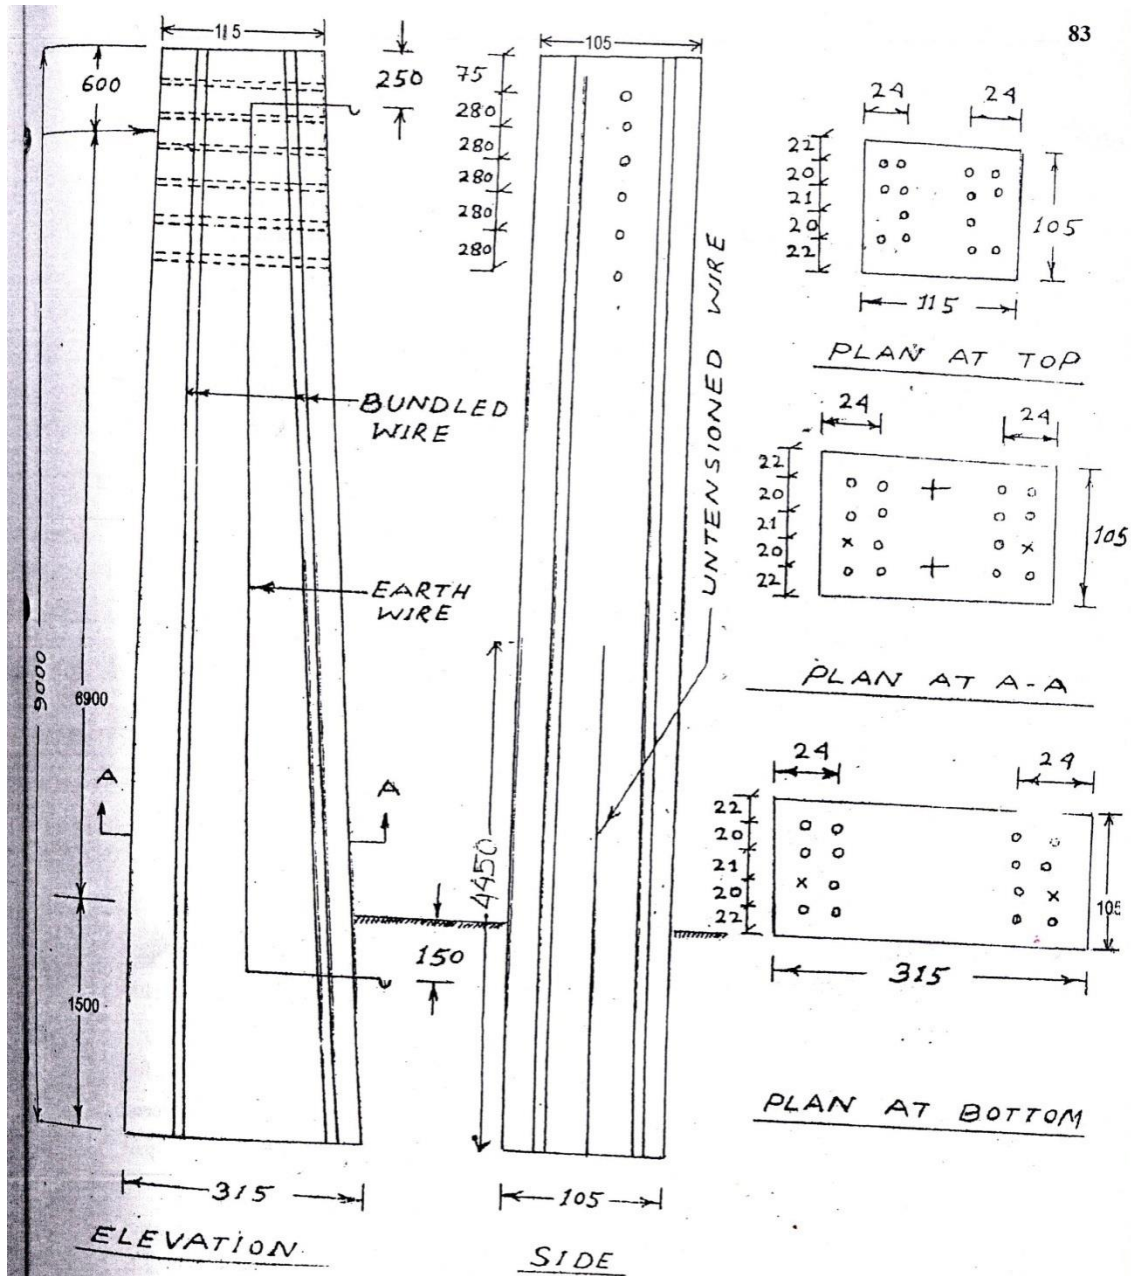 83
115
600
250
9000
6900
1500
A
A
BUNDLED
WIRE
EARTH
WIRE
150
315
ELEVATION
105
75
280
280
280
280
280
UNTENSIONED WIRE
4450
105
SIDE
24
24
22
20
21
20
22
105
115
PLAN AT TOP
24
24
22
20
21
20
22
105
PLAN AT A-A
24
24
22
20
21
20
22
105
315
PLAN AT BOTTOM